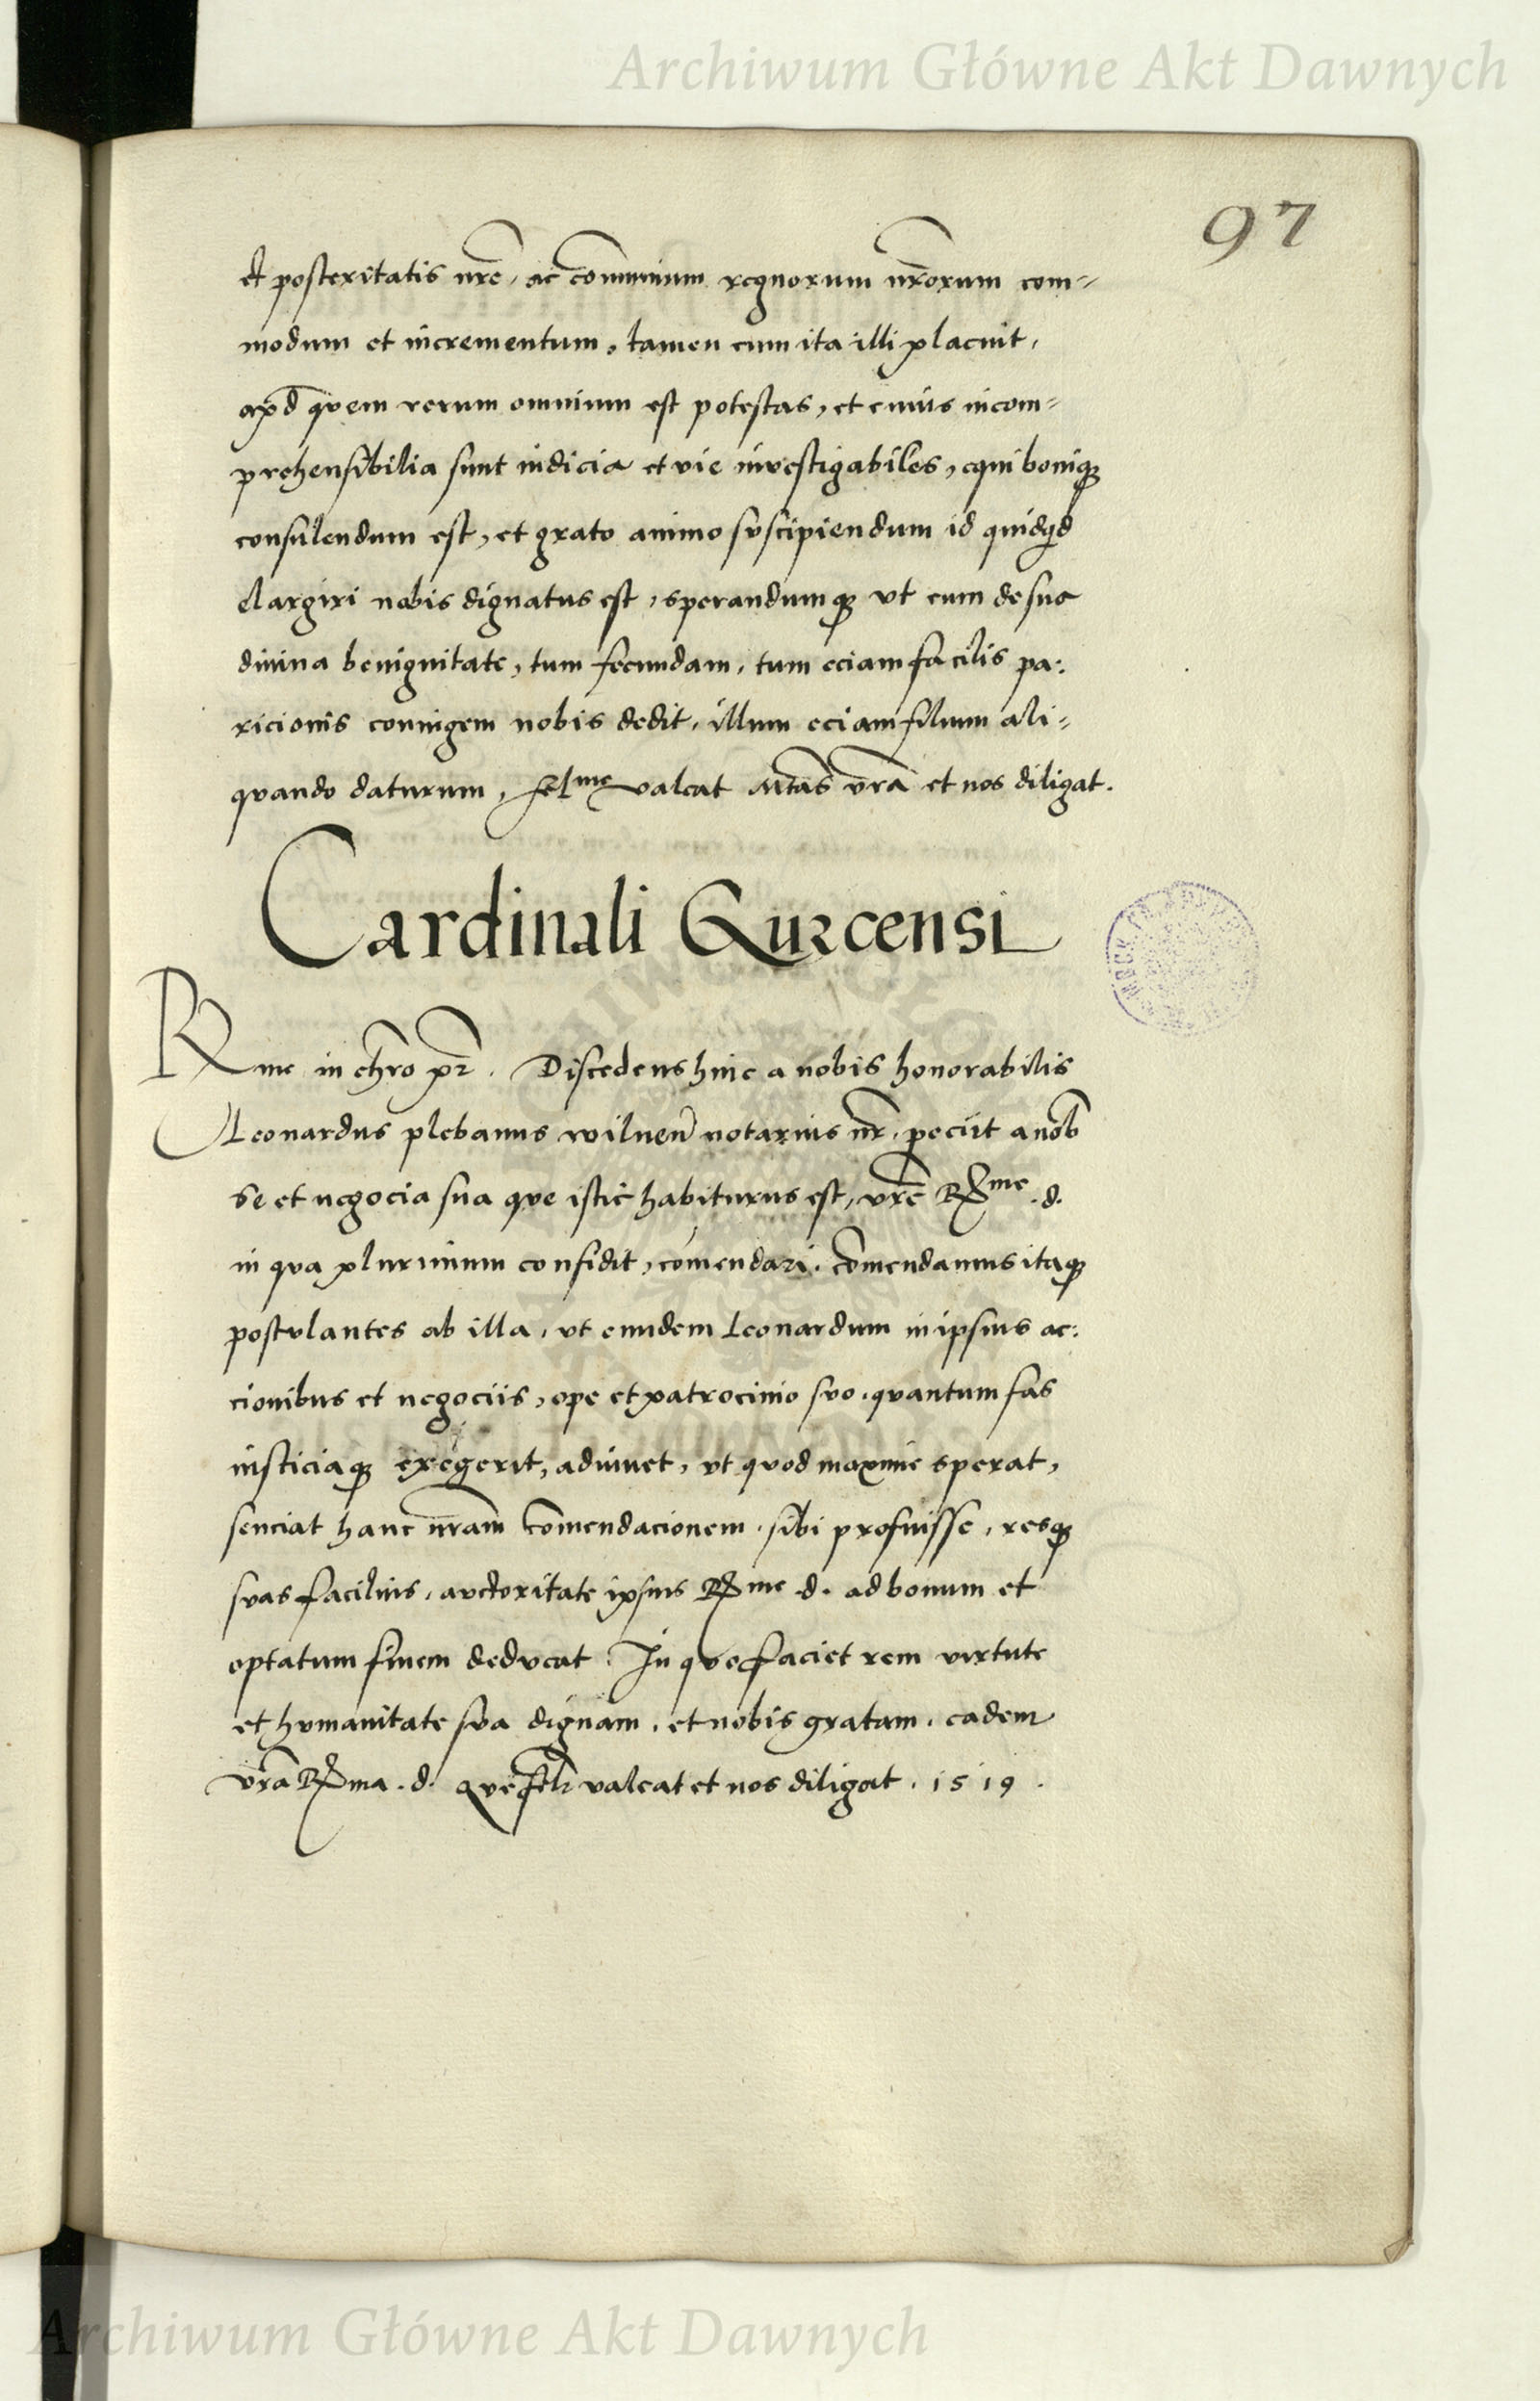 Archiwum Główne Akt Dawnych
97
et posteritatis nrē, ac cōmunium regnorum nrōrum com-
modum et incrementum, tamen cum ita illi placuit,
apd quem rerum omnium est potestas, et cuius incom-
prehensibilia sunt iudicia et vie investigabiles, equi boniq;
consulendum est, et grato animo suscipiendum id quidqd
elargiri nobis dignatus est, sperandumq; vt cum de sua
divina benignitate, tum fecundam, tum eciam facilis pa:
ricionis coniugem nobis dedit, illum eciam filium ali-
quando daturum, felme valeat Mtas vrā et nos diligat.
Cardinali Gurcensi
Rme in chro pr. Discedens hinc a nobis honorabilis
Leonardus plebanus wilnen notarius nr, peciit a nob
se et negocia sua que istic habiturus est, vrē Rme. d.
in qva plurimum confidit, comendari. comendamus itaq;
postvlantes ab illa, vt eundem Leonardum in ipsius ac:
cionibus et negociis, ope et patrocinio svo, qvantum fas
iusticiaq; exegerit, adiuuet, vt qvod maxime sperat,
senciat hanc nrām comendacionem sibi profuisse, resq;
svas facilius, avctoritate ipsius Rme d. ad bonum et
optatum finem dedvcat. In qvo faciet rem virtute
et hvmanitate sva dignam, et nobis gratam. eadem
vrā Rma. d. qve felr valeat et nos diligat. 1519.
Archiwum Główne Akt Dawnych